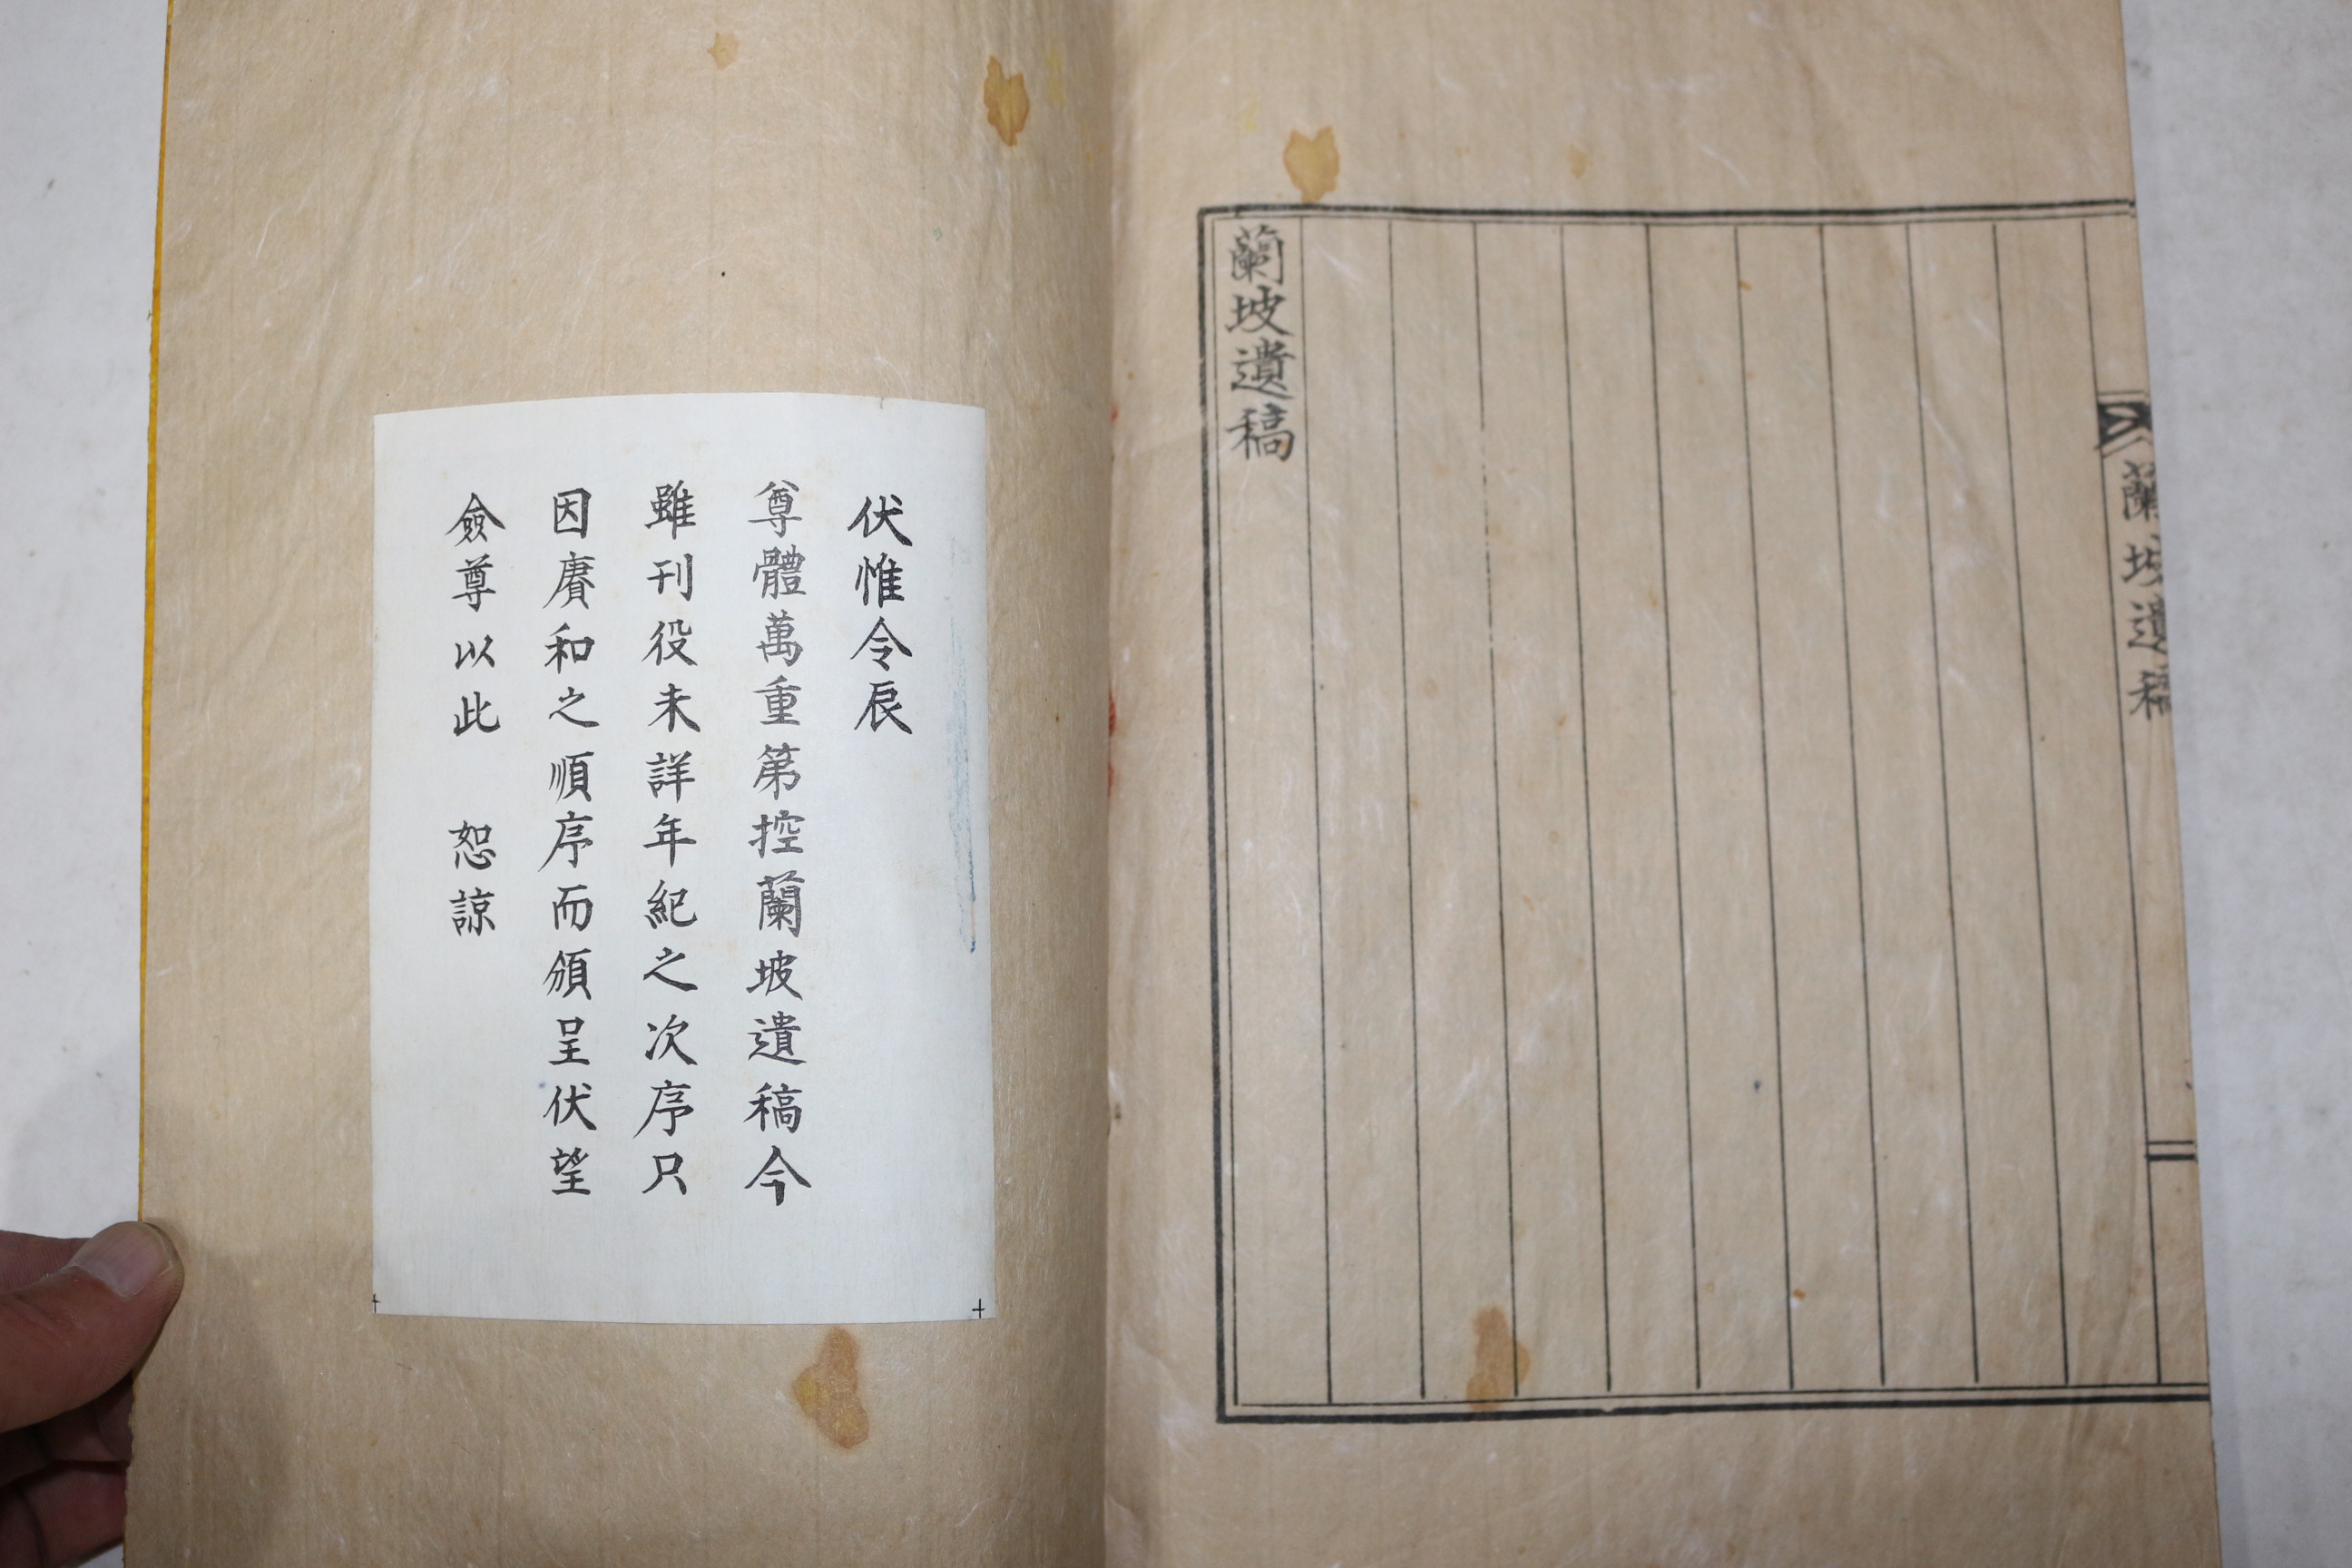 蘭坡遺稿
蘭坡遺稿
伏惟令辰
尊體萬重第控蘭坡遺稿今
雖刊役未詳年紀之次序只
因賡和之順序而頒呈伏望
僉尊以此　恕諒